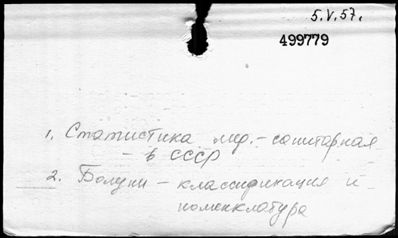 5.V.57.
499779
1. Статистика мед.-санитарная
- в СССР
2. Болезни - классификация и
номенклатура